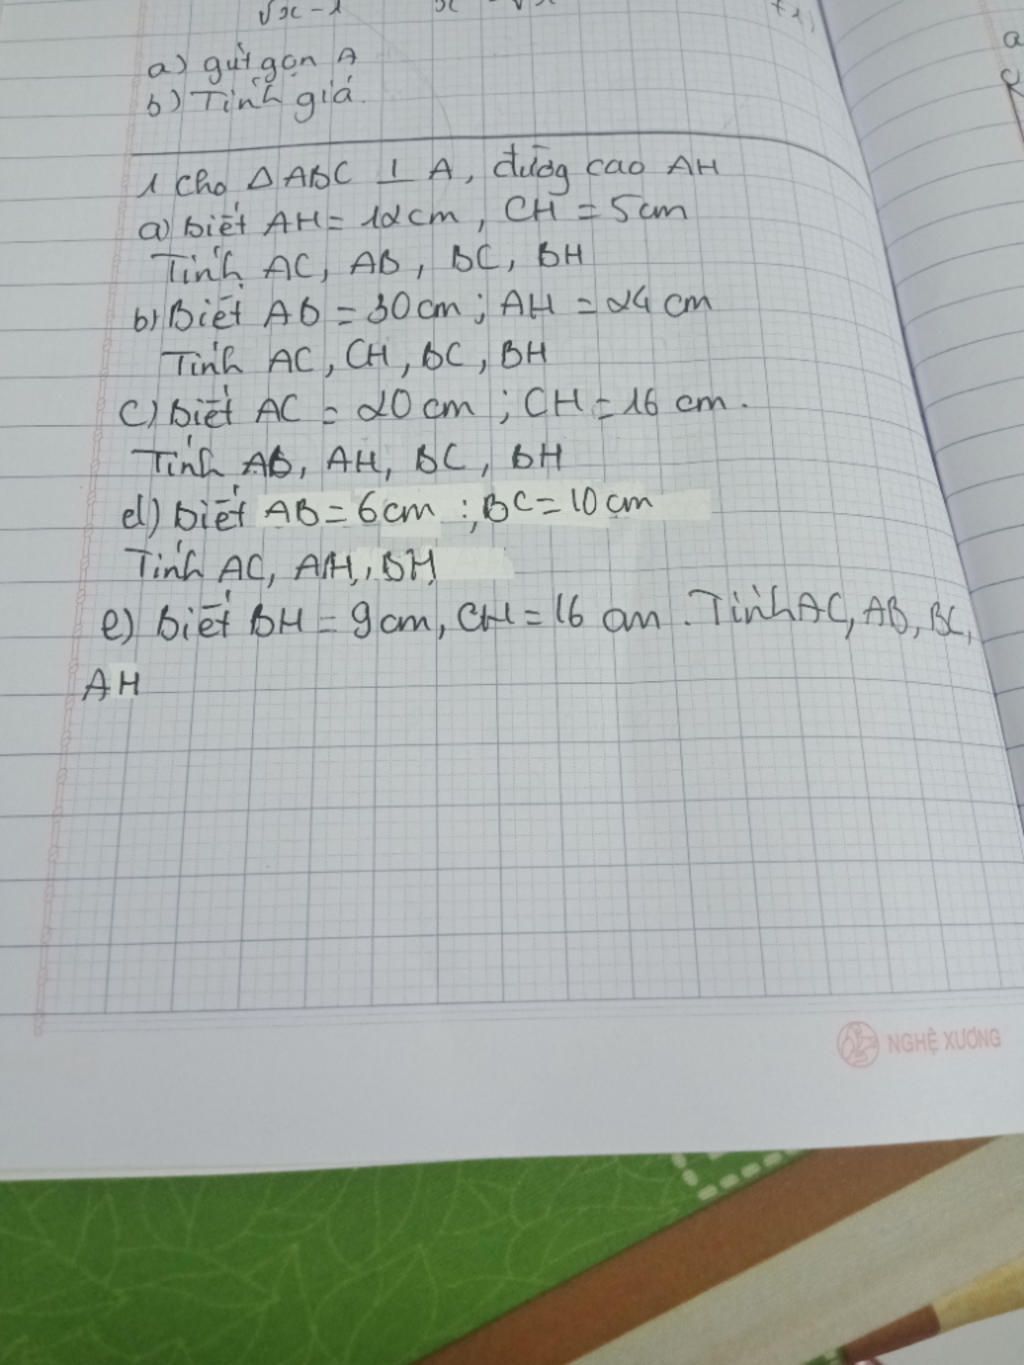 √x - 1
a) gút gọn A
b) Tính giá.
1 Cho △ABC ⊥ A, đường cao AH
a) biết AH = 12cm, CH = 5cm
Tính AC, AB, BC, BH
b) Biết AB = 30cm; AH = 24 cm
Tính AC, CH, BC, BH
c) biết AC = 20 cm; CH = 16 cm.
Tính AB, AH, BC, BH
d) biết AB = 6cm ; BC = 10cm
Tính AC, AH, BH
e) biết BH = 9cm, CH = 16 cm. Tính AC, AB, BC,
AH
NGHỆ XƯƠNG